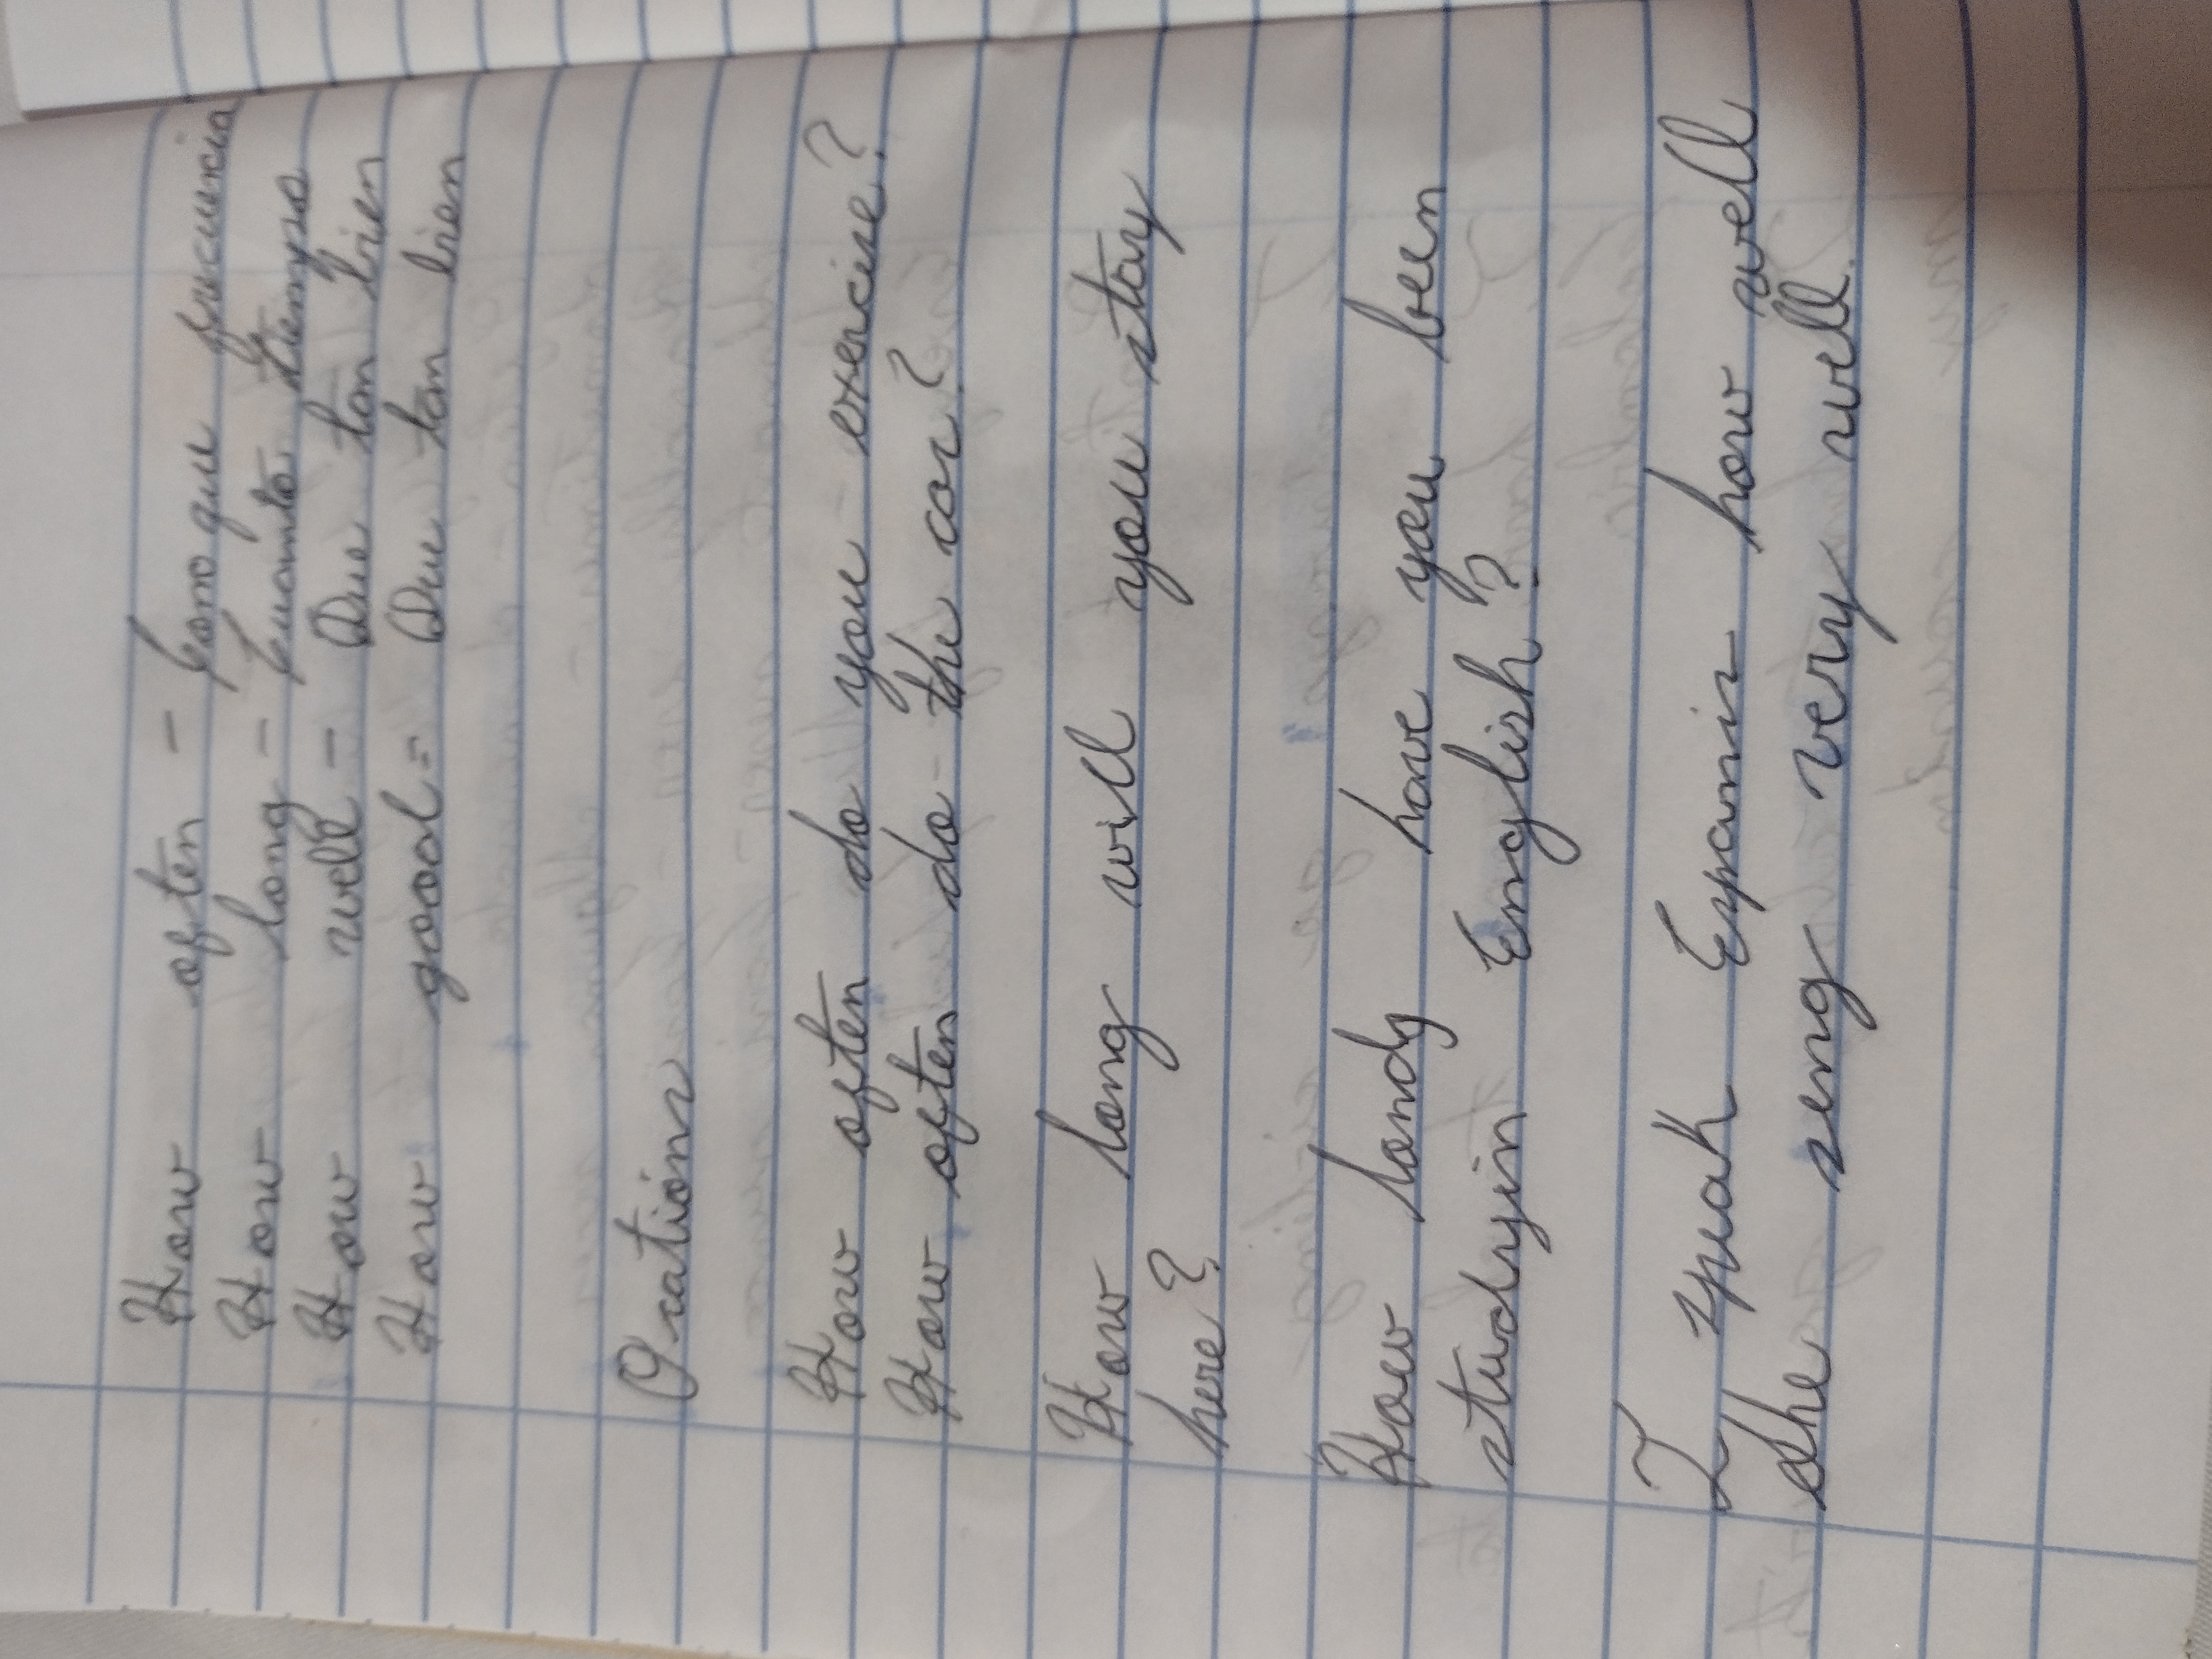 How often - Con que frecuencia
How long - Cuanto tiempo
How well - Que tan bien
How good = Que tan bien
Orations
How often do you exercise?
How often do the car?
How long will you stay
here?
How landy have you been
studyin English?
I speak Espanis how well
She seng very well.